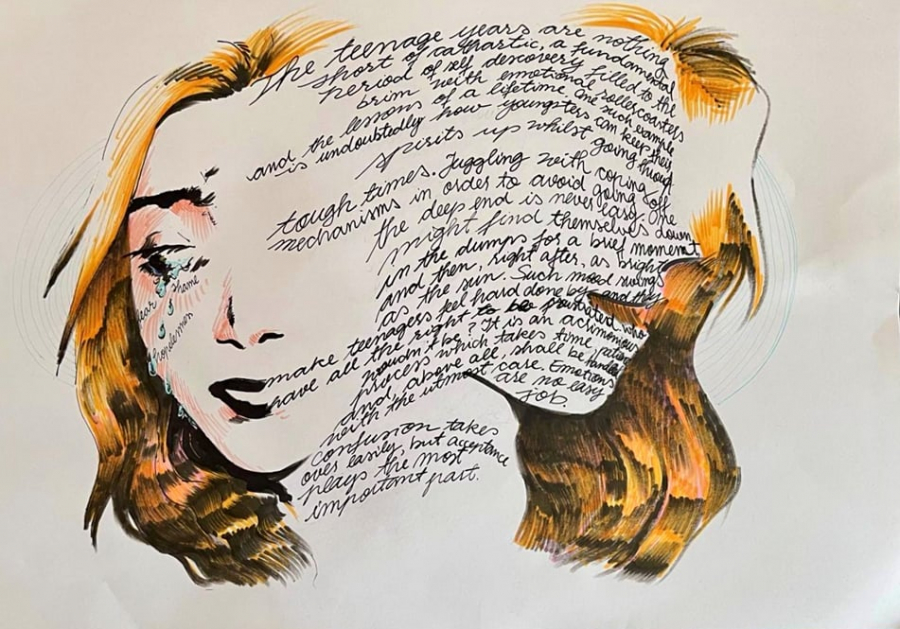 The teenage years are nothing
short of cathartic, a fundamental
period of self discovery filled to the
brim with emotional rollercoasters
and the lessons of a lifetime. One such example
is undoubtedly how youngsters can keep their
spirits up whilst going through
tough times. Juggling with coping
mechanisms in order to avoid going off
the deep end is never easy. One
might find themselves down
in the dumps for a brief moment
and then, right after, as bright
as the sun. Such mood swings
make teenagers feel hard done by, and they
have all the right to be frustrated. who
wouldn't be? It is an acrimonious
process which takes time, patience
and, above all, shall be handled
with the utmost care. Emotions
are no easy
job.
confusion takes
over easily, but acceptance
plays the most
important part.
fear
shame
hopelessness